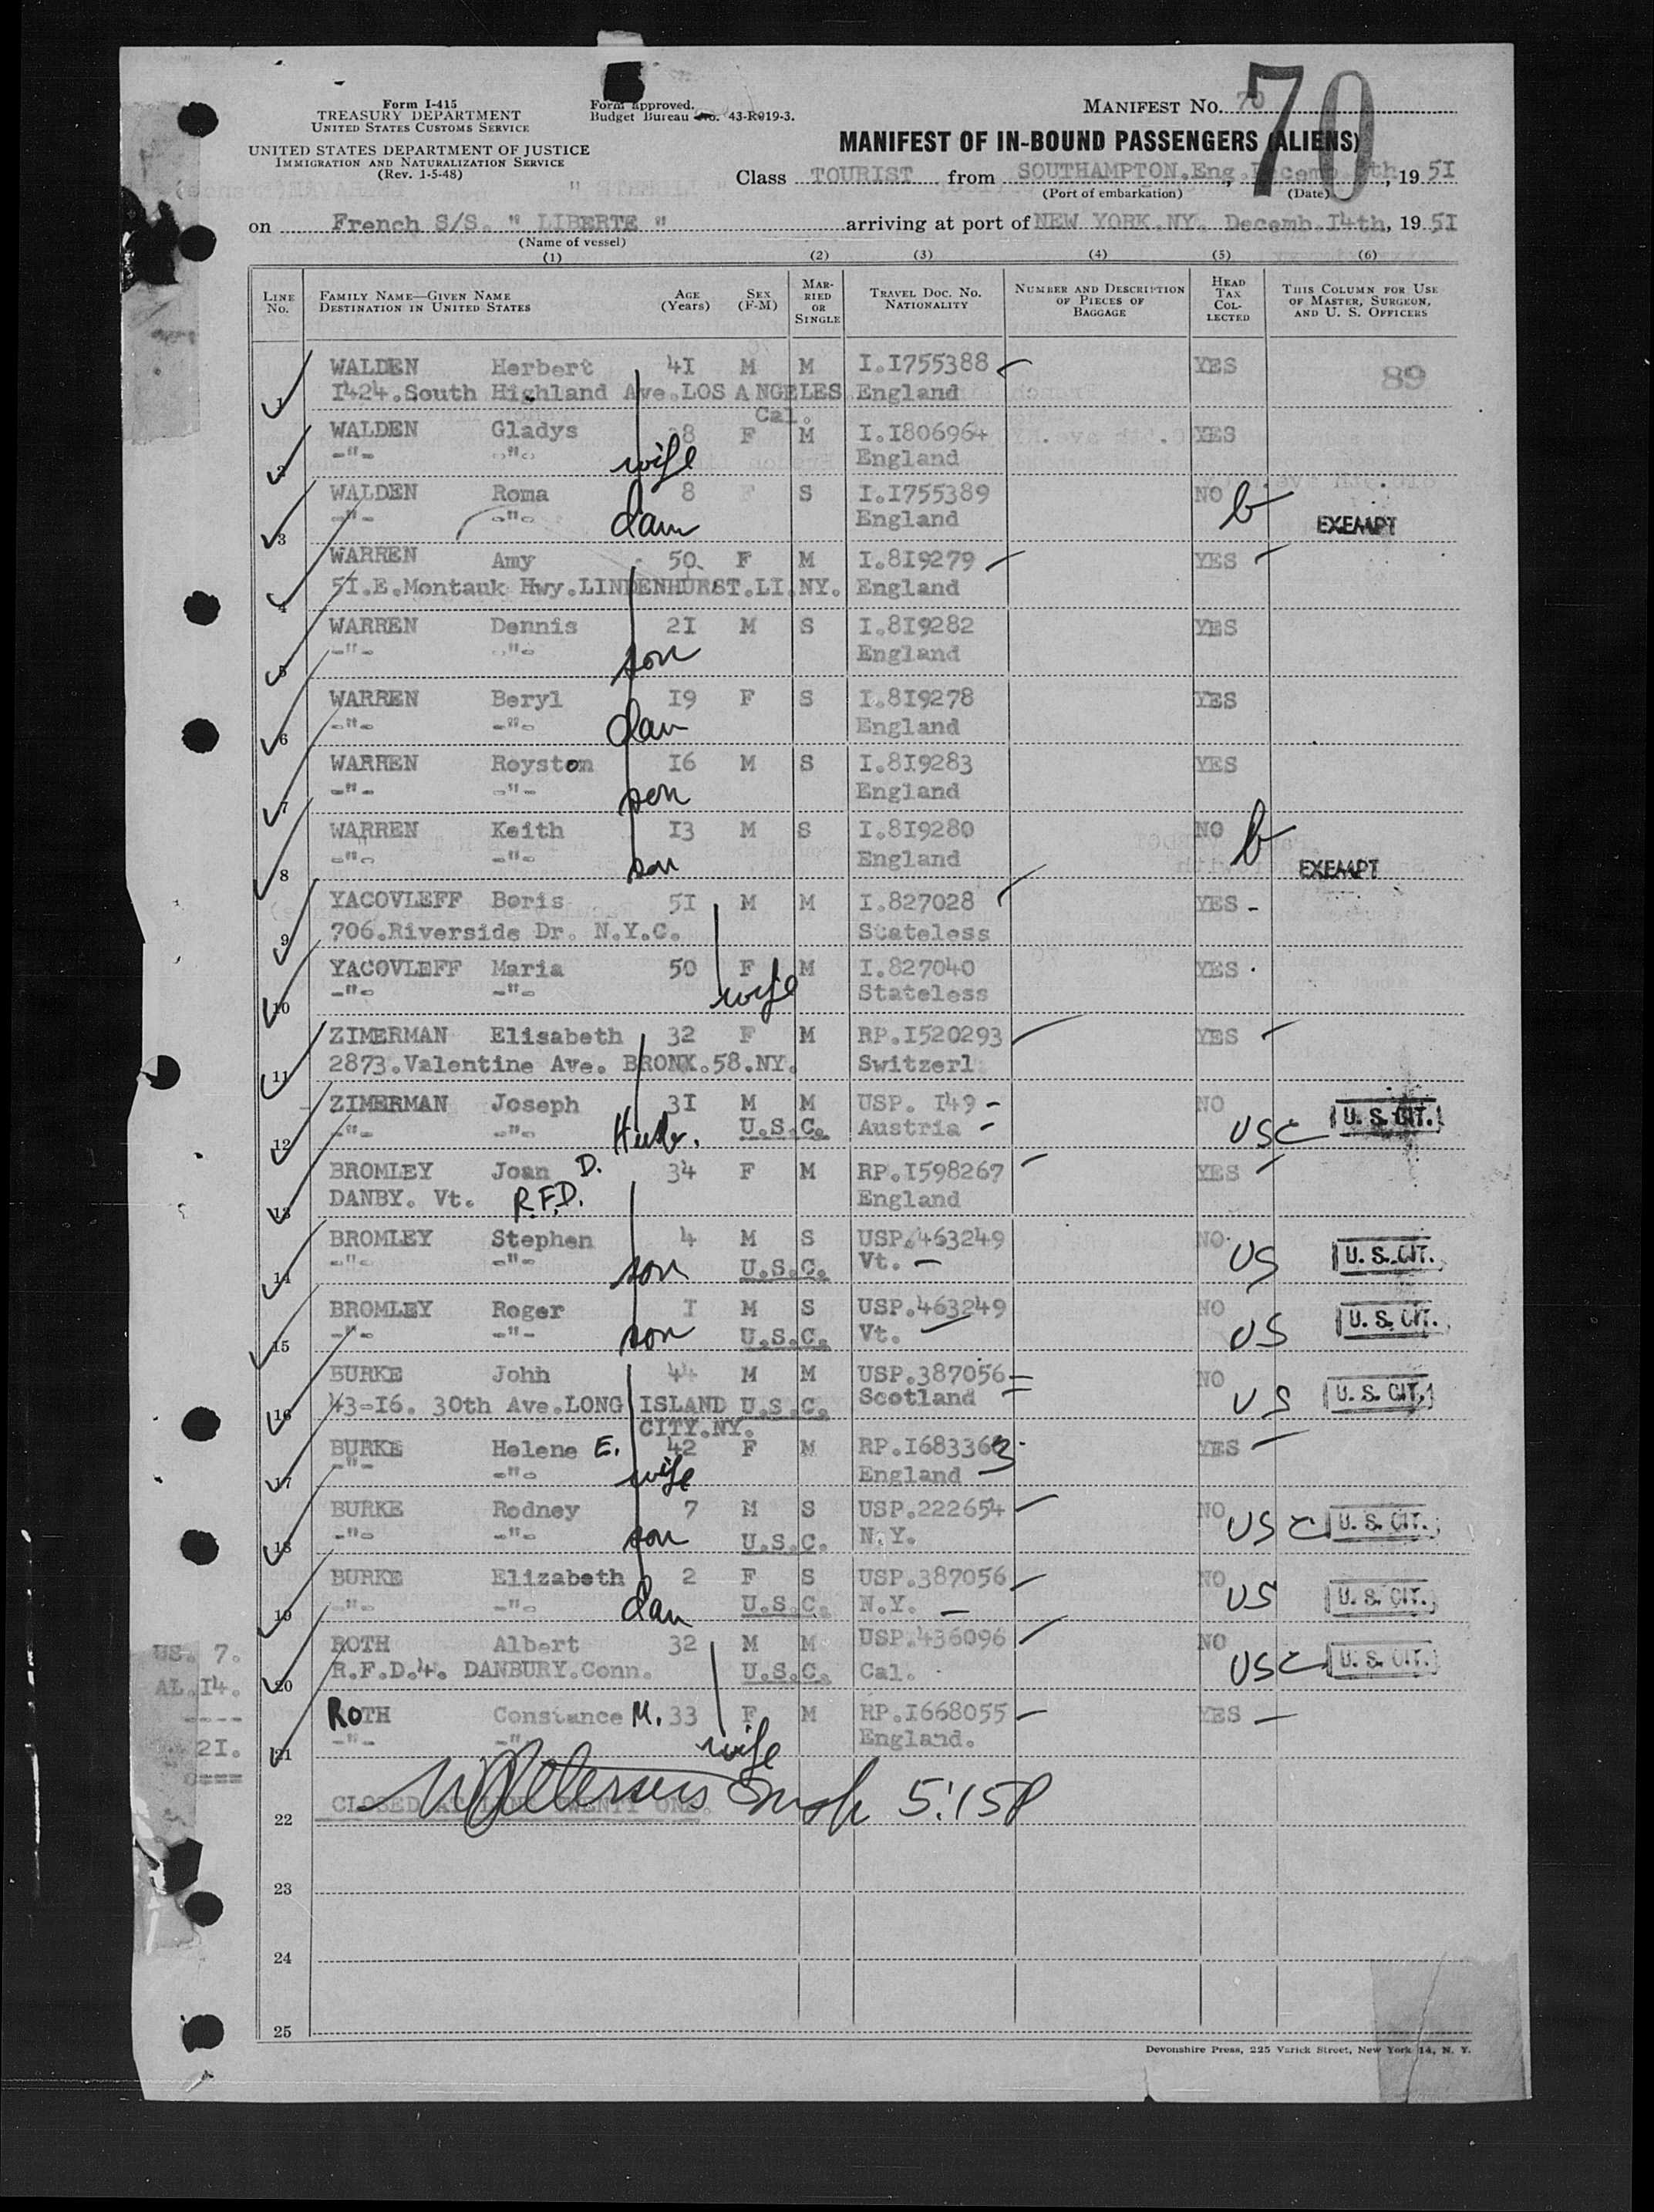 Form I-415
TREASURY DEPARTMENT
UNITED STATES CUSTOMS SERVICE
UNITED STATES DEPARTMENT OF JUSTICE
IMMIGRATION AND NATURALIZATION SERVICE
(Rev. 1-5-48)
Form approved.
Budget Bureau No. 43-R019-3.
MANIFEST No. 70
70
MANIFEST OF IN-BOUND PASSENGERS (ALIENS)
Class TOURIST from SOUTHAMPTON.Eng. , 19 51
(Port of embarkation) (Date)
on French S/S. " LIBERTE " arriving at port of NEW YORK.NY. Decemb.I4th, 19 5I
(Name of vessel)
(1) (2) (3) (4) (5) (6)
LINE No. FAMILY NAME—GIVEN NAME DESTINATION IN UNITED STATES AGE (Years) SEX (F-M) MARRIED OR SINGLE TRAVEL DOC. No. NATIONALITY NUMBER AND DESCRIPTION OF PIECES OF BAGGAGE HEAD TAX COLLECTED THIS COLUMN FOR USE OF MASTER, SURGEON, AND U. S. OFFICERS
1 WALDEN Herbert 4I M M I.I755388 YES 89
I424.South Highland Ave.LOS ANGELES England
Cal.
2 WALDEN Gladys 8 F M I.I806964 YES
-"- -"- wife England
3 WALDEN Roma 8 F S I.I755389 NO b
-"- -"- dau England EXEMPT
4 WARREN Amy 50 F M I.8I9279 YES
5I.E.Montauk Hwy.LINDENHURST.LI.NY. England
5 WARREN Dennis 2I M S I.8I9282 YES
-"- -"- son England
6 WARREN Beryl I9 F S I.8I9278 YES
-"- -"- dau England
7 WARREN Royston I6 M S I.8I9283 YES
-"- -"- son England
8 WARREN Keith I3 M S I.8I9280 NO b
-"- -"- son England EXEMPT
9 YACOVLEFF Boris 5I M M I.827028 YES -
706.Riverside Dr. N.Y.C. Stateless
10 YACOVLEFF Maria 50 F M I.827040 YES
-"- -"- wife Stateless
11 ZIMERMAN Elisabeth 32 F M RP.I520293 YES
2873.Valentine Ave. BRONX.58.NY. Switzerl
12 ZIMERMAN Joseph 3I M M USP. I49 - NO
-"- -"- Husb. U.S.C. Austria - USC U. S. CIT.
13 BROMLEY Joan D. 34 F M RP.I598267 YES
DANBY. Vt. R.F.D. England
14 BROMLEY Stephen 4 M S USP.463249 NO
-"- -"- son U.S.C. Vt. - US U. S. CIT.
15 BROMLEY Roger I M S USP.463249 NO
-"- -"- son U.S.C. Vt. US U. S. CIT.
16 BURKE John 44 M M USP.387056 NO
43-I6. 30th Ave.LONG ISLAND U.S.C. Scotland US U. S. CIT.
CITY.NY.
17 BURKE Helene E. 42 F M RP.I683363 YES
-"- -"- wife England
18 BURKE Rodney 7 M S USP.222654 NO
-"- -"- son U.S.C. N.Y. USC U. S. CIT.
19 BURKE Elizabeth 2 F S USP.387056 NO
-"- -"- dau U.S.C. N.Y. US U. S. CIT.
20 ROTH Albert 32 M M USP.436096 NO
R.F.D.4. DANBURY.Conn. U.S.C. Cal. USC U. S. CIT.
21 ROTH Constance M. 33 F M RP.I668055 YES
-"- -"- wife England.
US. 7.
AL.I4.
----
2I.
====
22 CLOSED AT LINE TWENTY ONE.
23
24
25
Devonshire Press, 225 Varick Street, New York 14, N. Y.